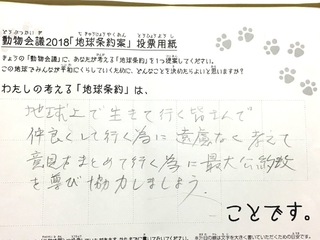 動物会議2018「地球条約案」投票用紙
きょうの「動物会議」に、あなたが考える「地球条約」を1つ提案してください。
この地球でみんなが平和にくらしていくために、どんなことを決めたらよいと思いますか?
わたしの考える「地球条約」は、
地球上で生きて行く皆さんで
仲良くして行く為に遠慮なく考えて
意見をまとめて行く為に最大公約数
を喜び協力しましょう。
ことです。